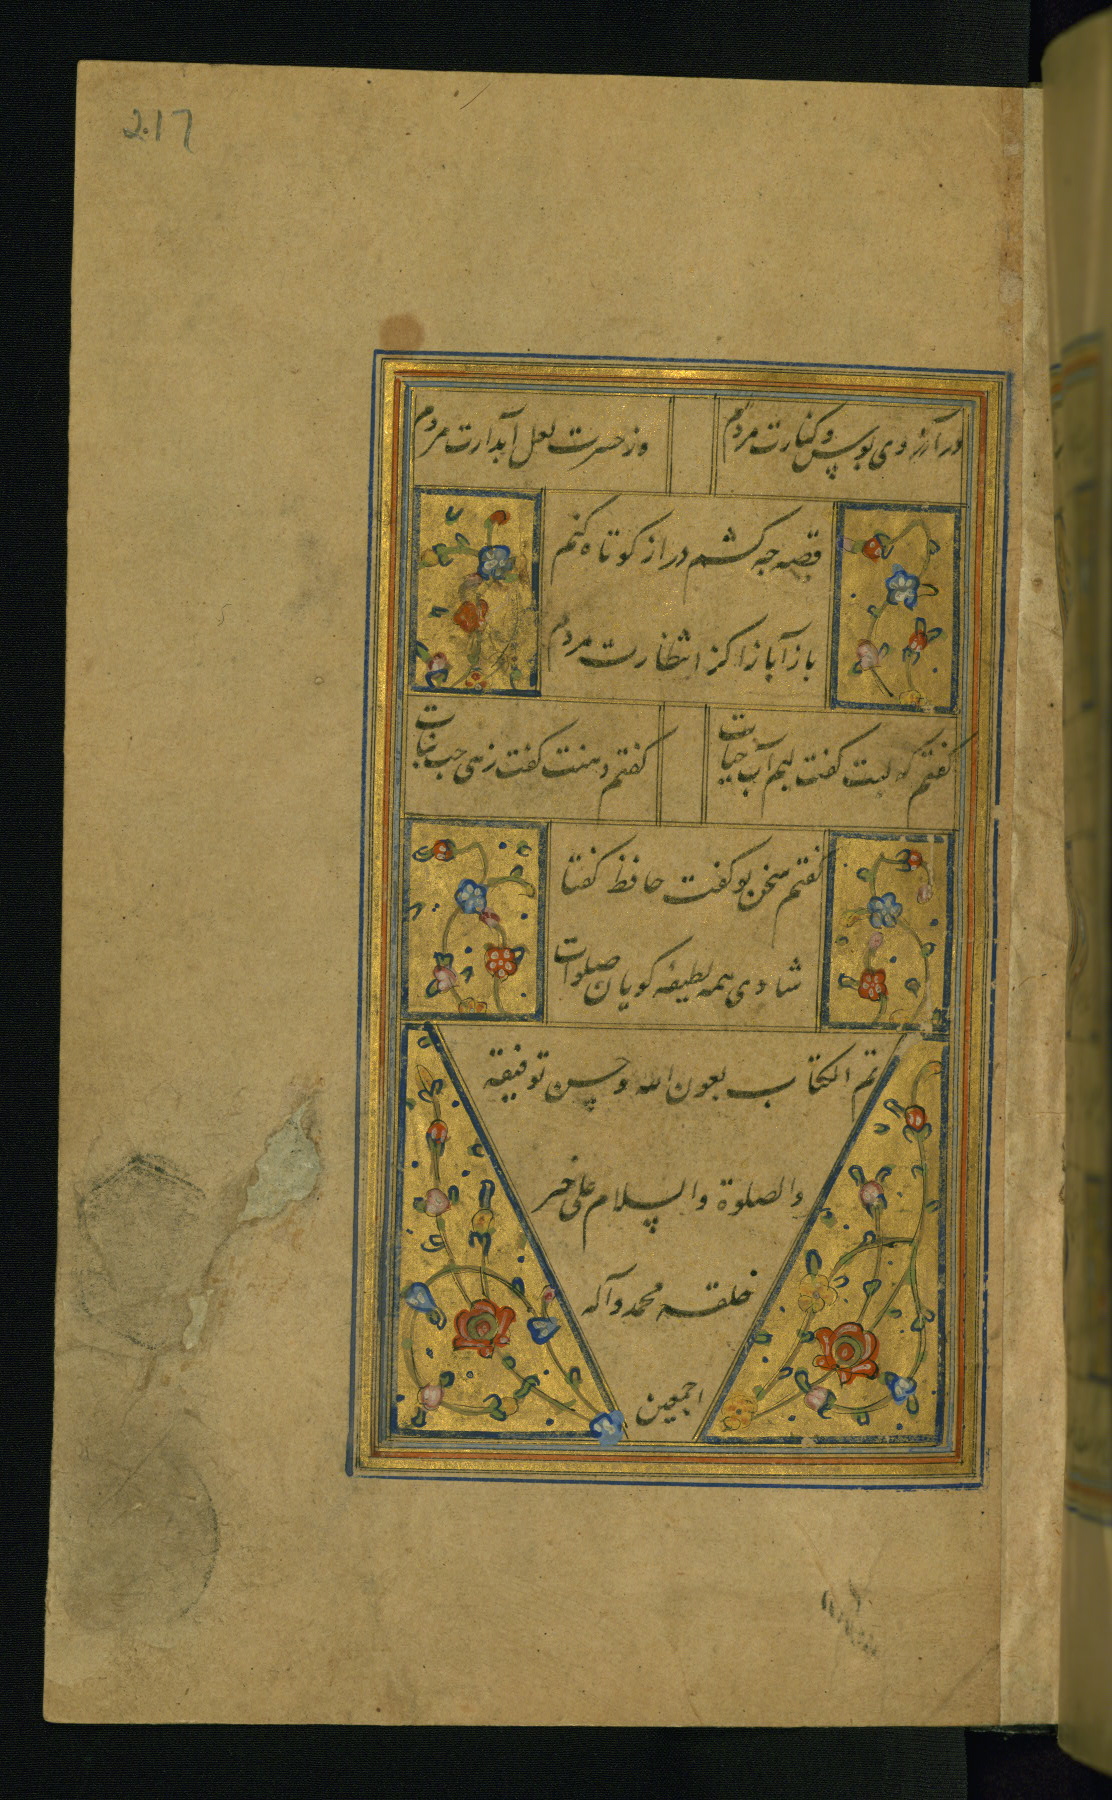 217
در آرزوی بوس و کنارت مردم
وز حسرت لعل آبدارت مردم
قصه چه کشم دراز کوتاه کنم
باز آ باز آ کز انتظارت مردم
کفتم که لبت کفت لبم آب حیات
کفتم دهنت کفت زهی حب نبات
کفتم سخن تو کفت حافظ کفتا
شادی همه لطیفه کویان صلوات
تم الکتاب بعون الله وحسن توفیقه
والصلوة والسلام علی خیر
خلقه محمد وآله
اجمعین